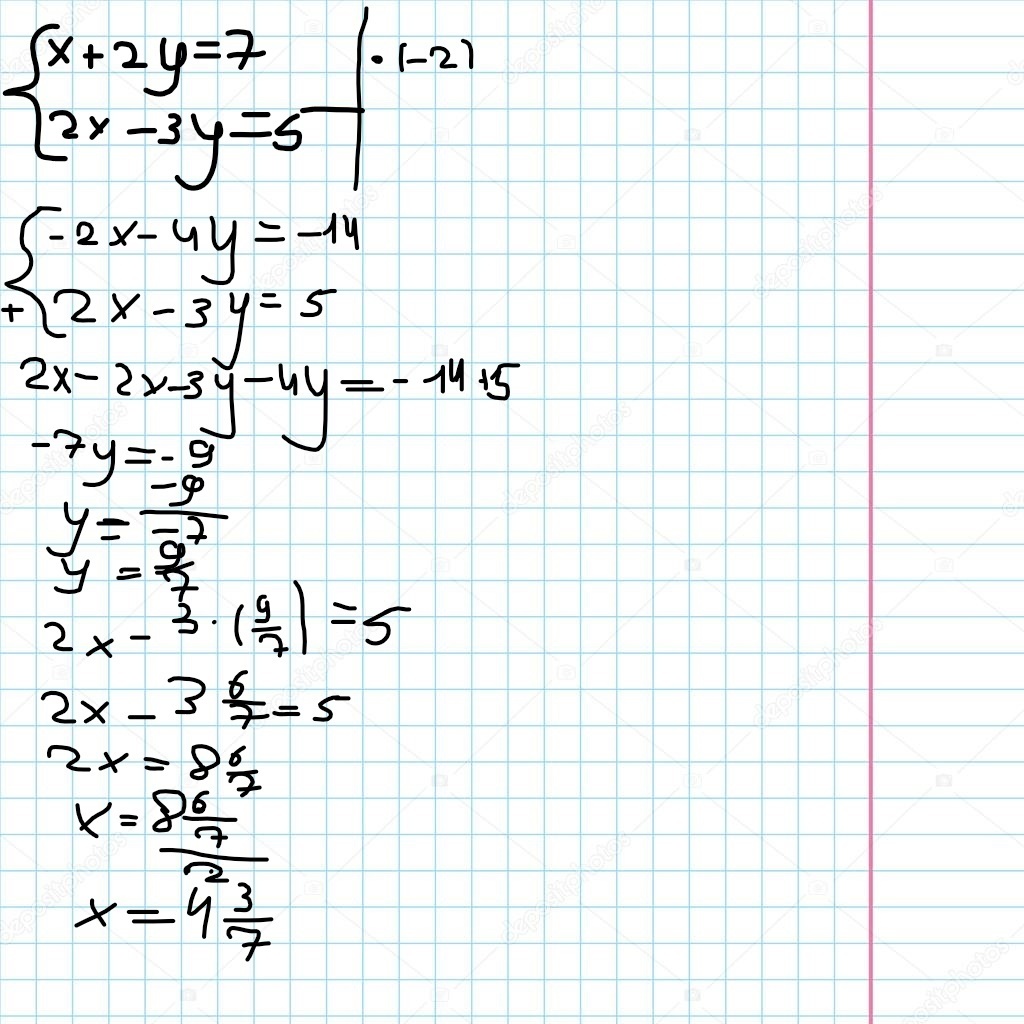 {x+2y=7 | · (-2)
{2x-3y=5
{-2x-4y=-14
+{2x-3y=5
2x-2x-3y-4y=-14+5
-7y=-9
y=-9/-7
y=9/7
2x-3·(9/7)=5
2x-3 6/7=5
2x=8 6/7
x=8 6/7/2
x=4 3/7
depositphotos